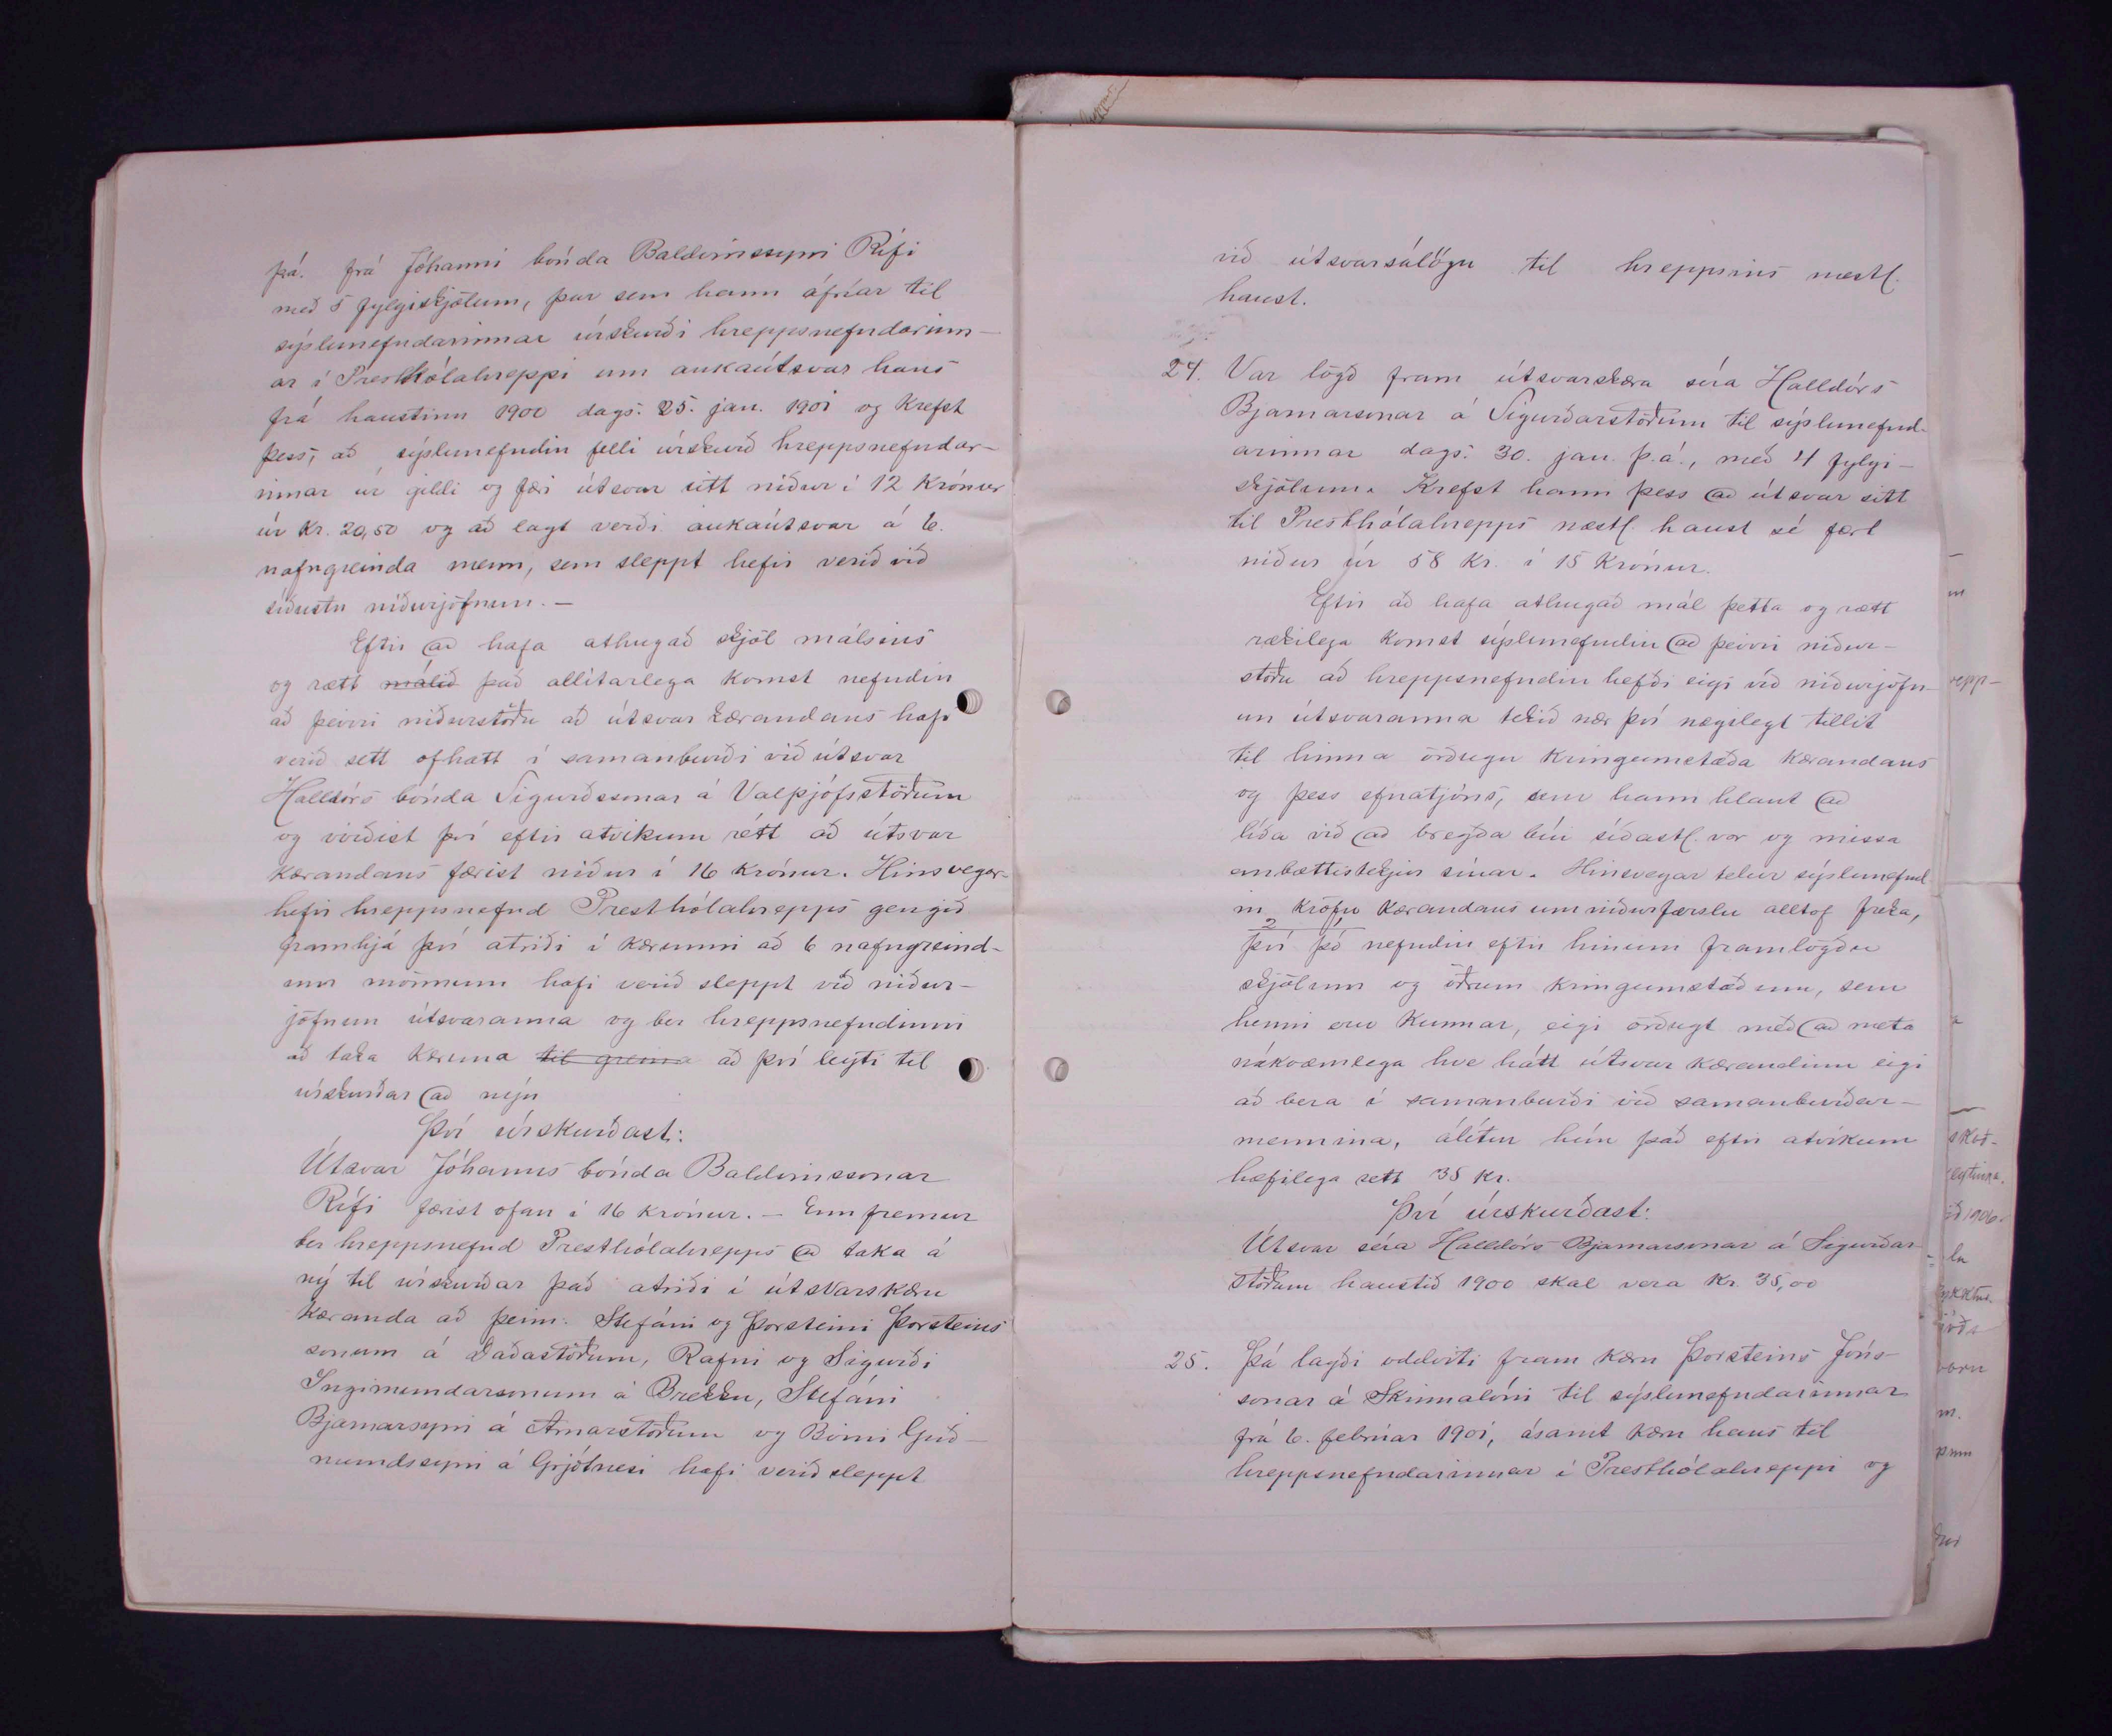 þ.á. frá Jóhanni bónda Baldvinssyni Rifi
með 5 fylgiskjölum, þar sem hann áfríar til
sýslunefndarinnar úrskurði hreppsnefndarinn-
ar í Presthólahreppi um aukaútsvar hans
frá haustinu 1900 dags. 25. jan. 1901 og krefst
þess, að sýslunefndin felli úrskurð hreppsnefndar-
innar úr gildi og færi útsvar sitt niður í 12 krónur
úr kr. 20,50 og að lagt verði aukaútsvar á 6.
nafngreinda menn, sem sleppt hefir verið við
síðustu niðurjöfnun. —
Eftir @ hafa athugað skjöl málsins
og rætt málið það allítarlega komst nefndin
að þeirri niðurstöðu að útsvar kærandans hafi
verið sett ofhátt í samanburði við útsvar
Halldórs bónda Sigurðssonar á Valþjófsstöðum
og virðist því eftir atvikum rétt að útsvar
kærandans færist niður í 16 krónur. Hinsvegar
hefir hreppsnefnd Presthólahrepps gengið
framhjá því atriði í kærunni að 6 nafngreind-
um mönnum hafi verið sleppt við niður-
jöfnun útsvaranna og ber hreppsnefndinni
að taka kæruna til greina að því leyti til
úrskurðar @ nýju
Því úrskurðast:
Útsvar Jóhanns bónda Baldvinssonar
Rifi færist ofan í 16 krónur. — Enn fremur
ber hreppsnefnd Presthólahrepps @ taka á
ný til úrskurðar það atriði í útsvarskæru
kæranda að þeim: Stefáni og Þorsteini Þorsteins
sonum á Daðastöðum, Rafni og Sigurði
Ingimundarsonum á Brekku, Stefáni
Bjarnarsyni á Arnarstöðum og Birni Guð-
mundssyni á Grjótnesi hafi verið sleppt
við útsvarsálögu til hreppsins næstl.
haust.
24. Var lögð fram útsvarskæra séra Halldórs
Bjarnarsonar á Sigurðarstöðum til sýslunefnd-
arinnar dags. 30. jan. þ.á., með 4 fylgi-
skjölum. Krefst hann þess @ útsvar sitt
til Presthólahrepps næstl. haust sé fært
niður úr 58 kr. í 15 krónur.
Eftir að hafa athugað mál þetta og rætt
rækilega komst sýslunefndin @ þeirri niður-
stöðu að hreppsnefndin hefði eigi við niðurjöfn-
un útsvaranna tekið nær því nægilegt tillit
til hinna örðugu kringumstæða kærandans
og þess efnatjóns, sem hann hlaut @
líða við @ bregða búi síðastl. vor og missa
embættistekjur sínar. Hinsvegar telur sýslunefnd
in kröfu kærandans um niðurfærslu alltof freka,
því þó nefndin eftir hinum framlögðu
skjölum og öðrum kringumstæðum, sem
henni eru kunnar, eigi örðugt með @ meta
nákvæmlega hve hátt útsvar kærandinn eigi
að bera í samanburði við samanburðar-
mennina, álítur hún það eftir atvikum
hæfilega sett 35 kr.
Því úrskurðast:
Útsvar séra Halldórs Bjarnarsonar á Sigurðar
stöðum haustið 1900 skal vera kr. 35,00
25. Þá lagði oddviti fram kæru Þorsteins Jóns-
sonar á Skinnalóni til sýslunefndarinnar
frá 6. febrúar 1901, ásamt kæru hans til
hreppsnefndarinnar í Presthólahreppi og